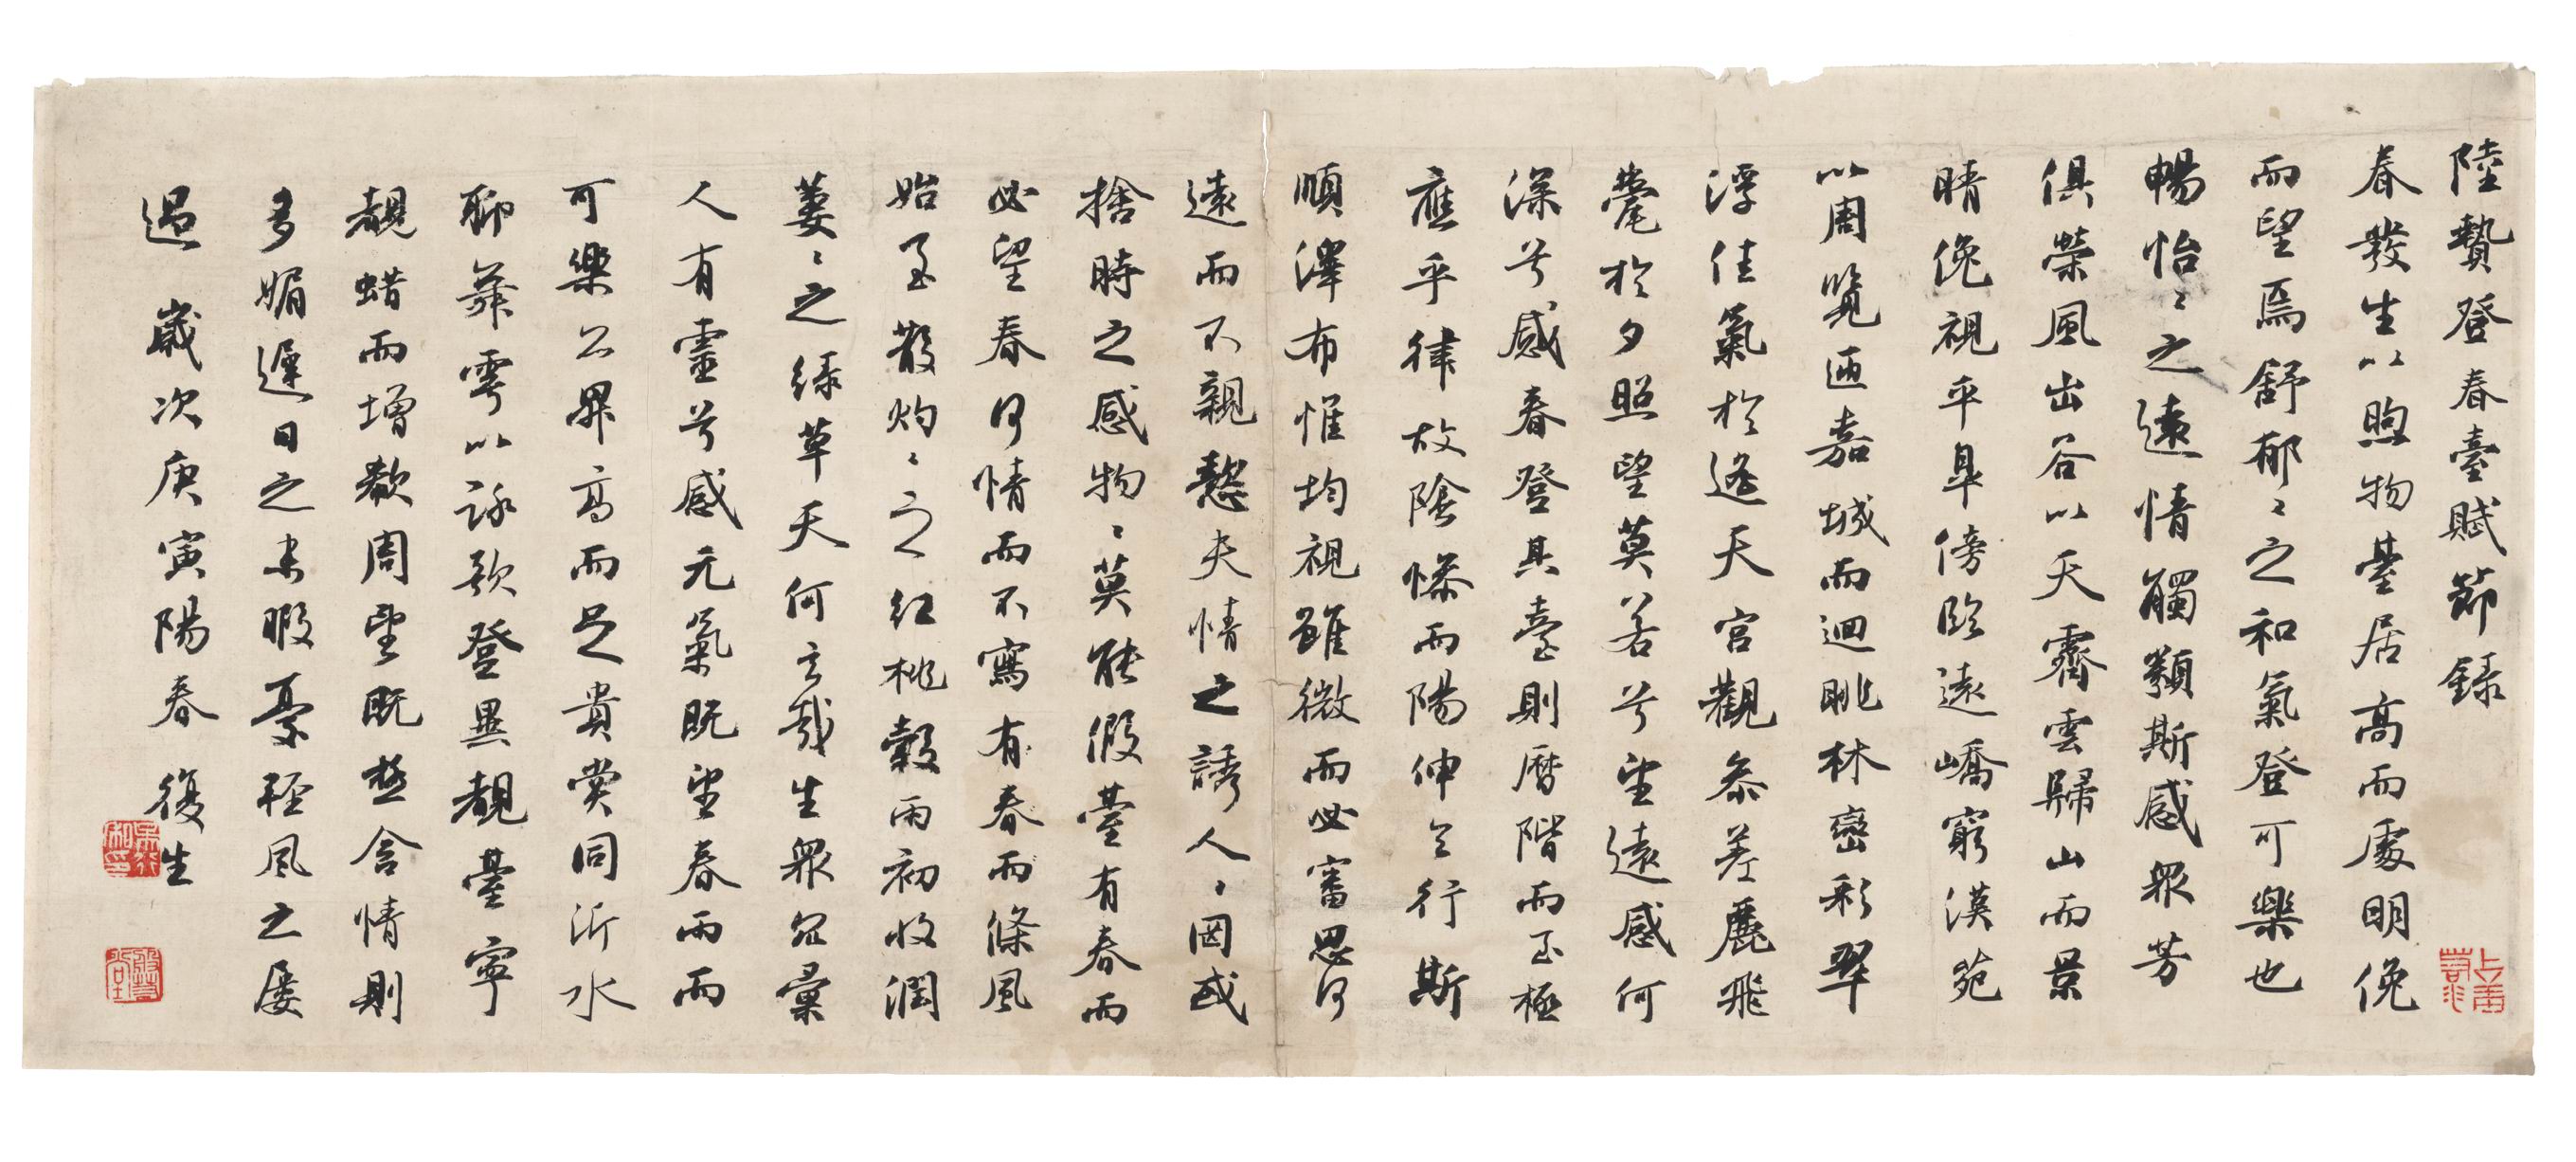 陸贄登春臺賦節錄
春發生以煦物臺居高而處明俛
而望焉舒郁〻之和氣登可樂也
暢怡〻之遠情觸類斯感眾芳
俱榮風出谷以天霽雲歸山而景
晴俛視平皐傍臨遠嶠窮漢苑
以周覽迊嘉城而迴眺林巒彩翠
浮佳氣於遙天宮觀參差麗飛
甍於夕照望莫若兮望遠感何
深兮感春登其臺則曆階而至極
應乎律故陰慘而陽伸令行斯
順澤布惟均視雖微而必審思何
遠而不親懿夫情之誘人〻因或
捨時之感物〻莫能假臺有春而
必望春何情而不寫有春而條風
始至散灼〻之紅桃穀雨初收潤
萋〻之綠草天何言哉生眾品彙
人有靈兮感元氣既望春而而
可樂亦升高而足貴賞同沂水
聊舞雩以詠歌登異覩臺寧
覩蜡而增歎周望既極含情則
多媚遲日之未暇憂輕風之屢
過 歲次庚寅陽春 復生